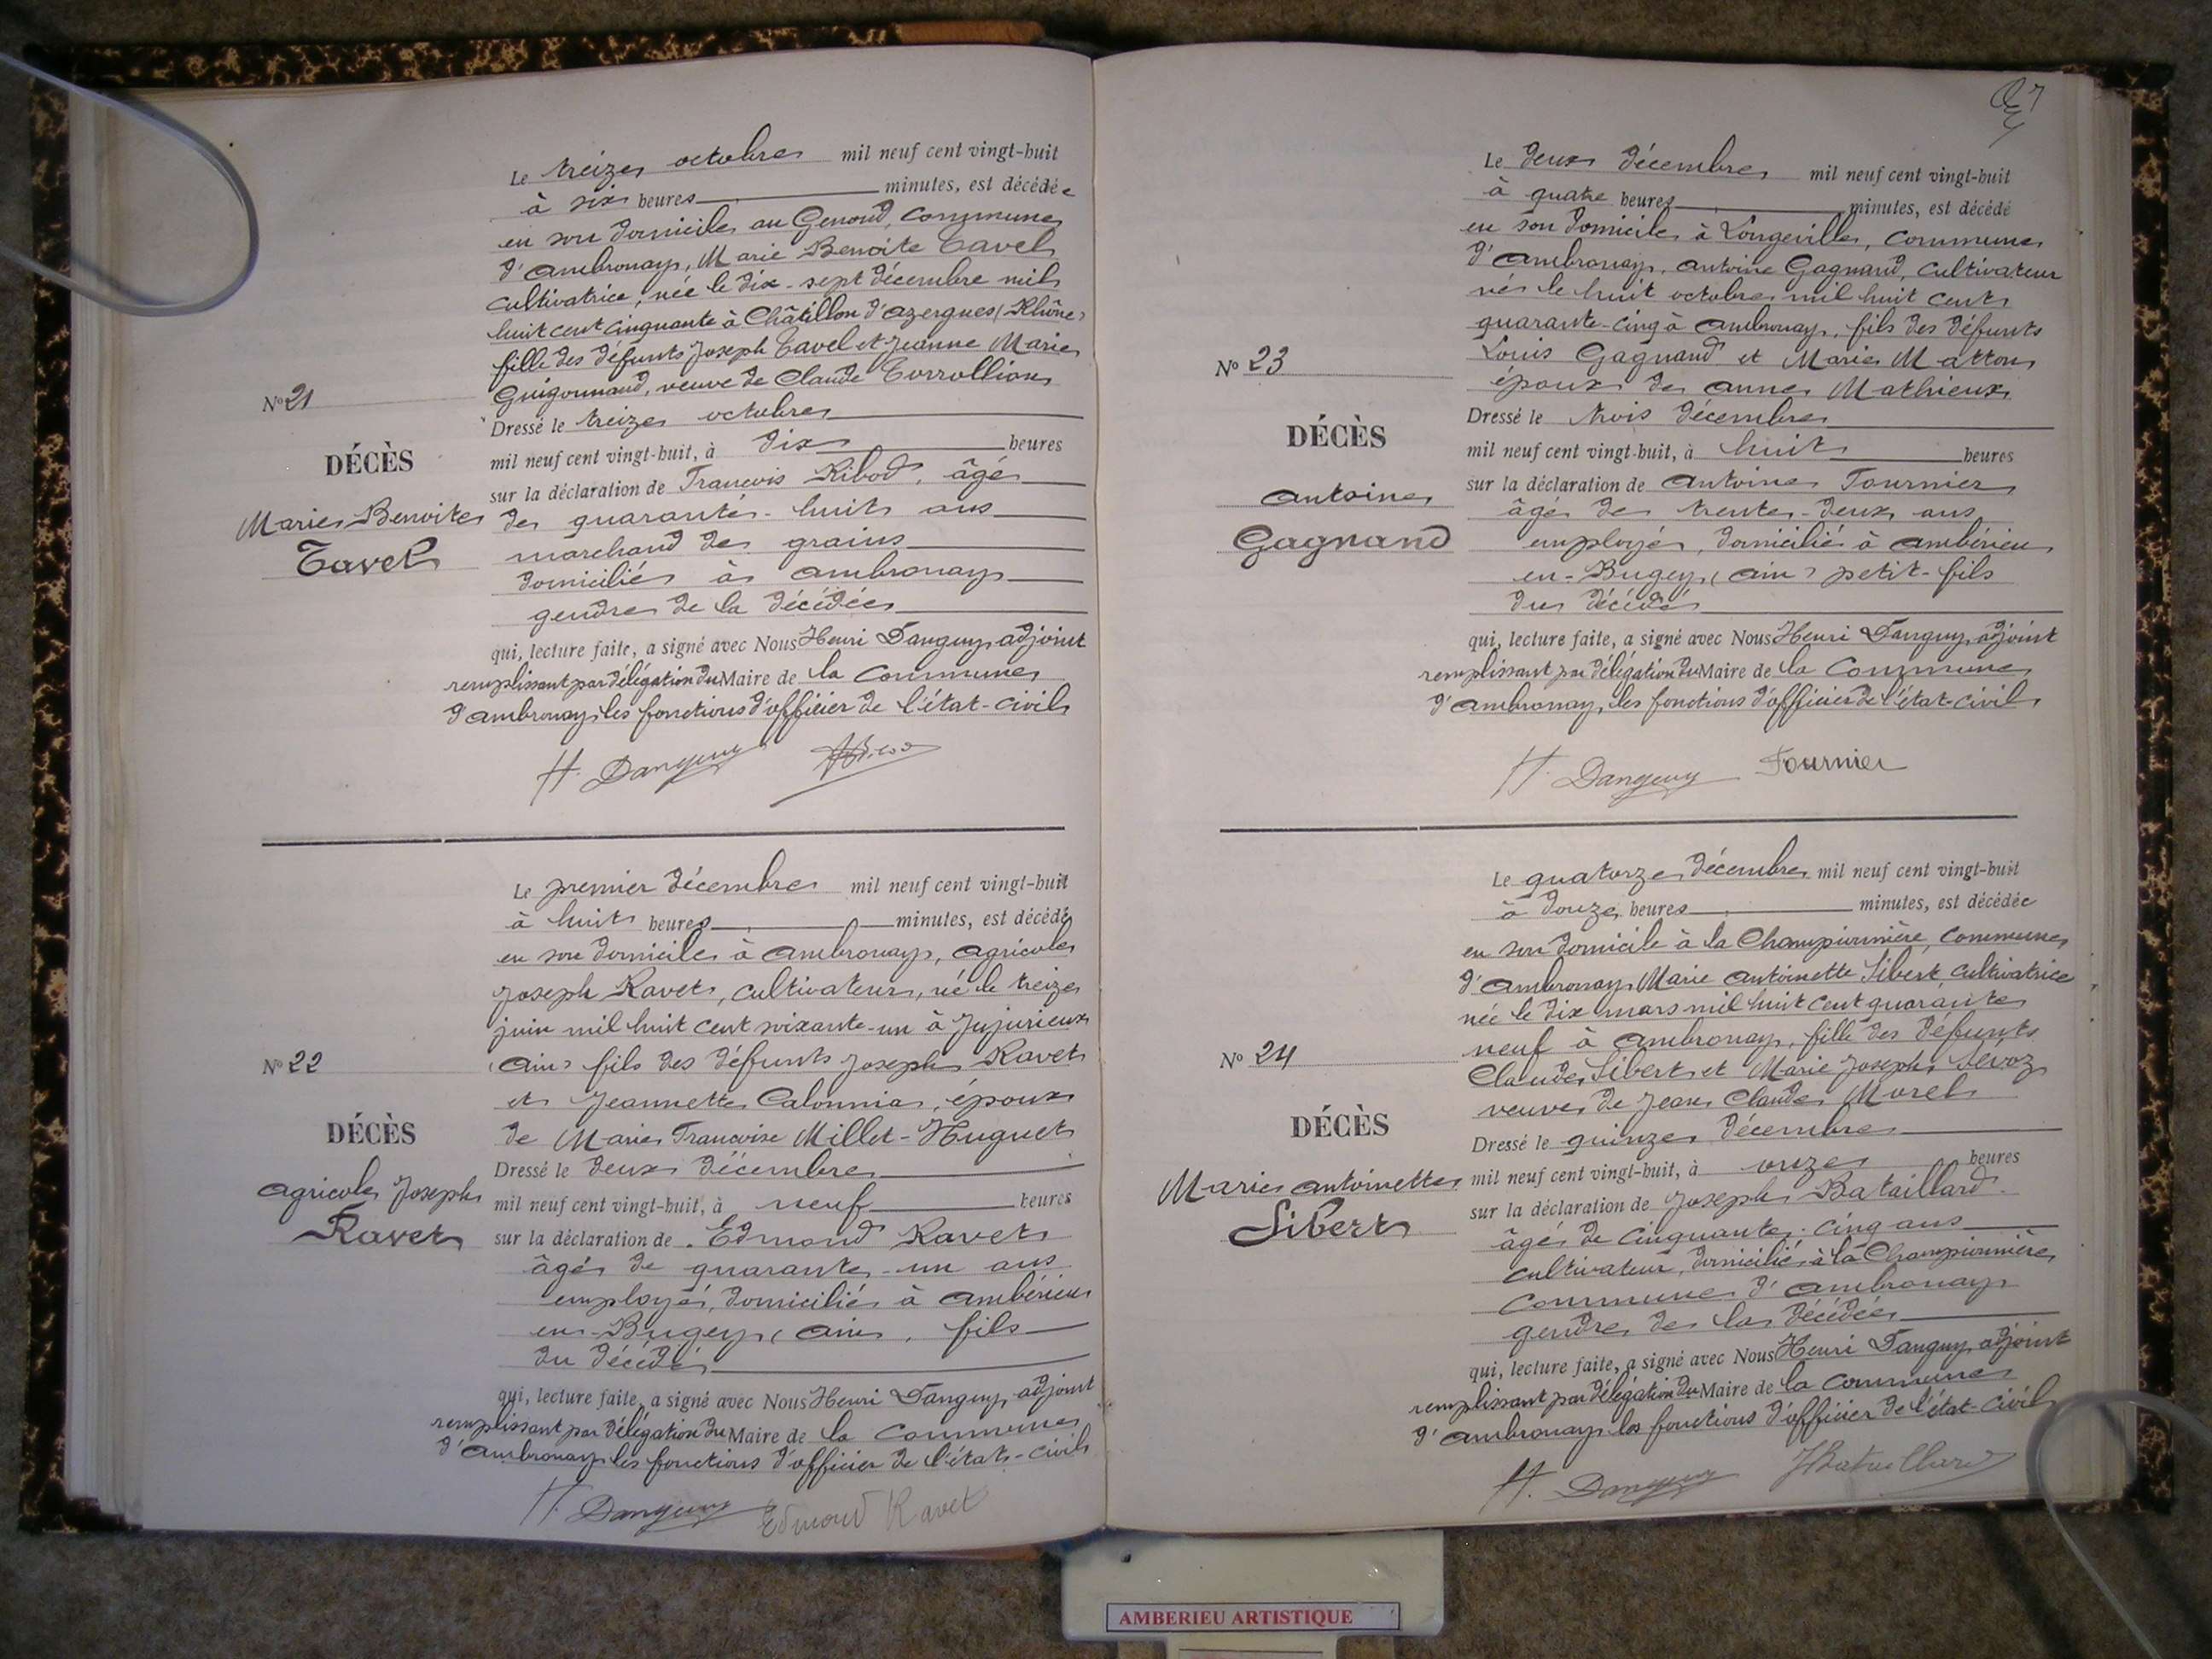 Le treize octobre mil neuf cent vingt-huit
à six heures minutes, est décédée
en son domicile au Genoud, commune
d'Ambronay, Marie Benoite Tavel
cultivatrice, née le dix-sept décembre mil
huit cent cinquante à Châtillon d'Azergues (Rhône)
fille des défunts Joseph Tavel et Jeanne Marie
Guigonnand, veuve de Claude Torrollion
Dressé le treize octobre
mil neuf cent vingt-huit, à dix heures
sur la déclaration de François Ribod, âgé
de quarante-huit ans
marchand de grains
domicilié à Ambronay
gendre de la décédée
qui, lecture faite, a signé avec Nous Henri Danguy, adjoint
remplissant par délégation du Maire de la Commune
d'Ambronay les fonctions d'officier de l'état-civil
H. Danguy
No 21
DÉCÈS
Marie Benoite
Tavel
Le premier décembre mil neuf cent vingt-huit
à huit heures minutes, est décédé
en son domicile à Ambronay, Agricole
Joseph Ravet, cultivateur, né le treize
juin mil huit cent soixante-un à Jujurieux
(Ain) fils des défunts Joseph Ravet
et Jeannette Calonnia, époux
de Marie Françoise Millet-Huguet
Dressé le deux décembre
mil neuf cent vingt-huit, à neuf heures
sur la déclaration de Edmond Ravet
âgé de quarante-un ans
employé, domicilié à Ambérieu
en-Bugey (Ain, fils
du décédé
qui, lecture faite, a signé avec Nous Henri Danguy, adjoint
remplissant par délégation du Maire de la Commune
d'Ambronay les fonctions d'officier de l'état-civil
H. Danguy Edmond Ravet
No 22
DÉCÈS
Agricole Joseph
Ravet
Le deux décembre mil neuf cent vingt-huit
à quatre heures minutes, est décédé
en son domicile à Longeville, commune
d'Ambronay, Antoine Gagnand, cultivateur
né le huit octobre mil huit cent
quarante-cinq à Ambronay, fils des défunts
Louis Gagnand et Marie Matton
époux de Anne Mathieux
Dressé le trois décembre
mil neuf cent vingt-huit, à huit heures
sur la déclaration de Antoine Fournier
âgé de trente-deux ans
employé, domicilié à Ambérieu
en-Bugey (Ain) petit-fils
du décédé
qui, lecture faite, a signé avec Nous Henri Danguy, adjoint
remplissant par délégation du Maire de la Commune
d'Ambronay, les fonctions d'officier de l'état-civil
H. Danguy Fournier
No 23
DÉCÈS
Antoine
Gagnand
Le quatorze décembre mil neuf cent vingt-huit
à douze heures minutes, est décédée
en son domicile à la Championnière, commune
d'Ambronay Marie Antoinette Sibert, cultivatrice
née le dix mars mil huit cent quarante
neuf à Ambronay, fille des défunts
Claude Sibert et Marie Joseph Sevoz
veuve de Jean Claude Morel
Dressé le quinze décembre
mil neuf cent vingt-huit, à onze heures
sur la déclaration de Joseph Bataillard
âgé de cinquante-cinq ans
cultivateur, domicilié à la Championnière
commune d'Ambronay
gendre de la décédée
qui, lecture faite, a signé avec Nous Henri Danguy, adjoint
remplissant par délégation du Maire de la commune
d'Ambronay les fonctions d'officier de l'état-civil
H. Danguy JBataillard
No 24
DÉCÈS
Marie Antoinette
Sibert
AMBERIEU ARTISTIQUE